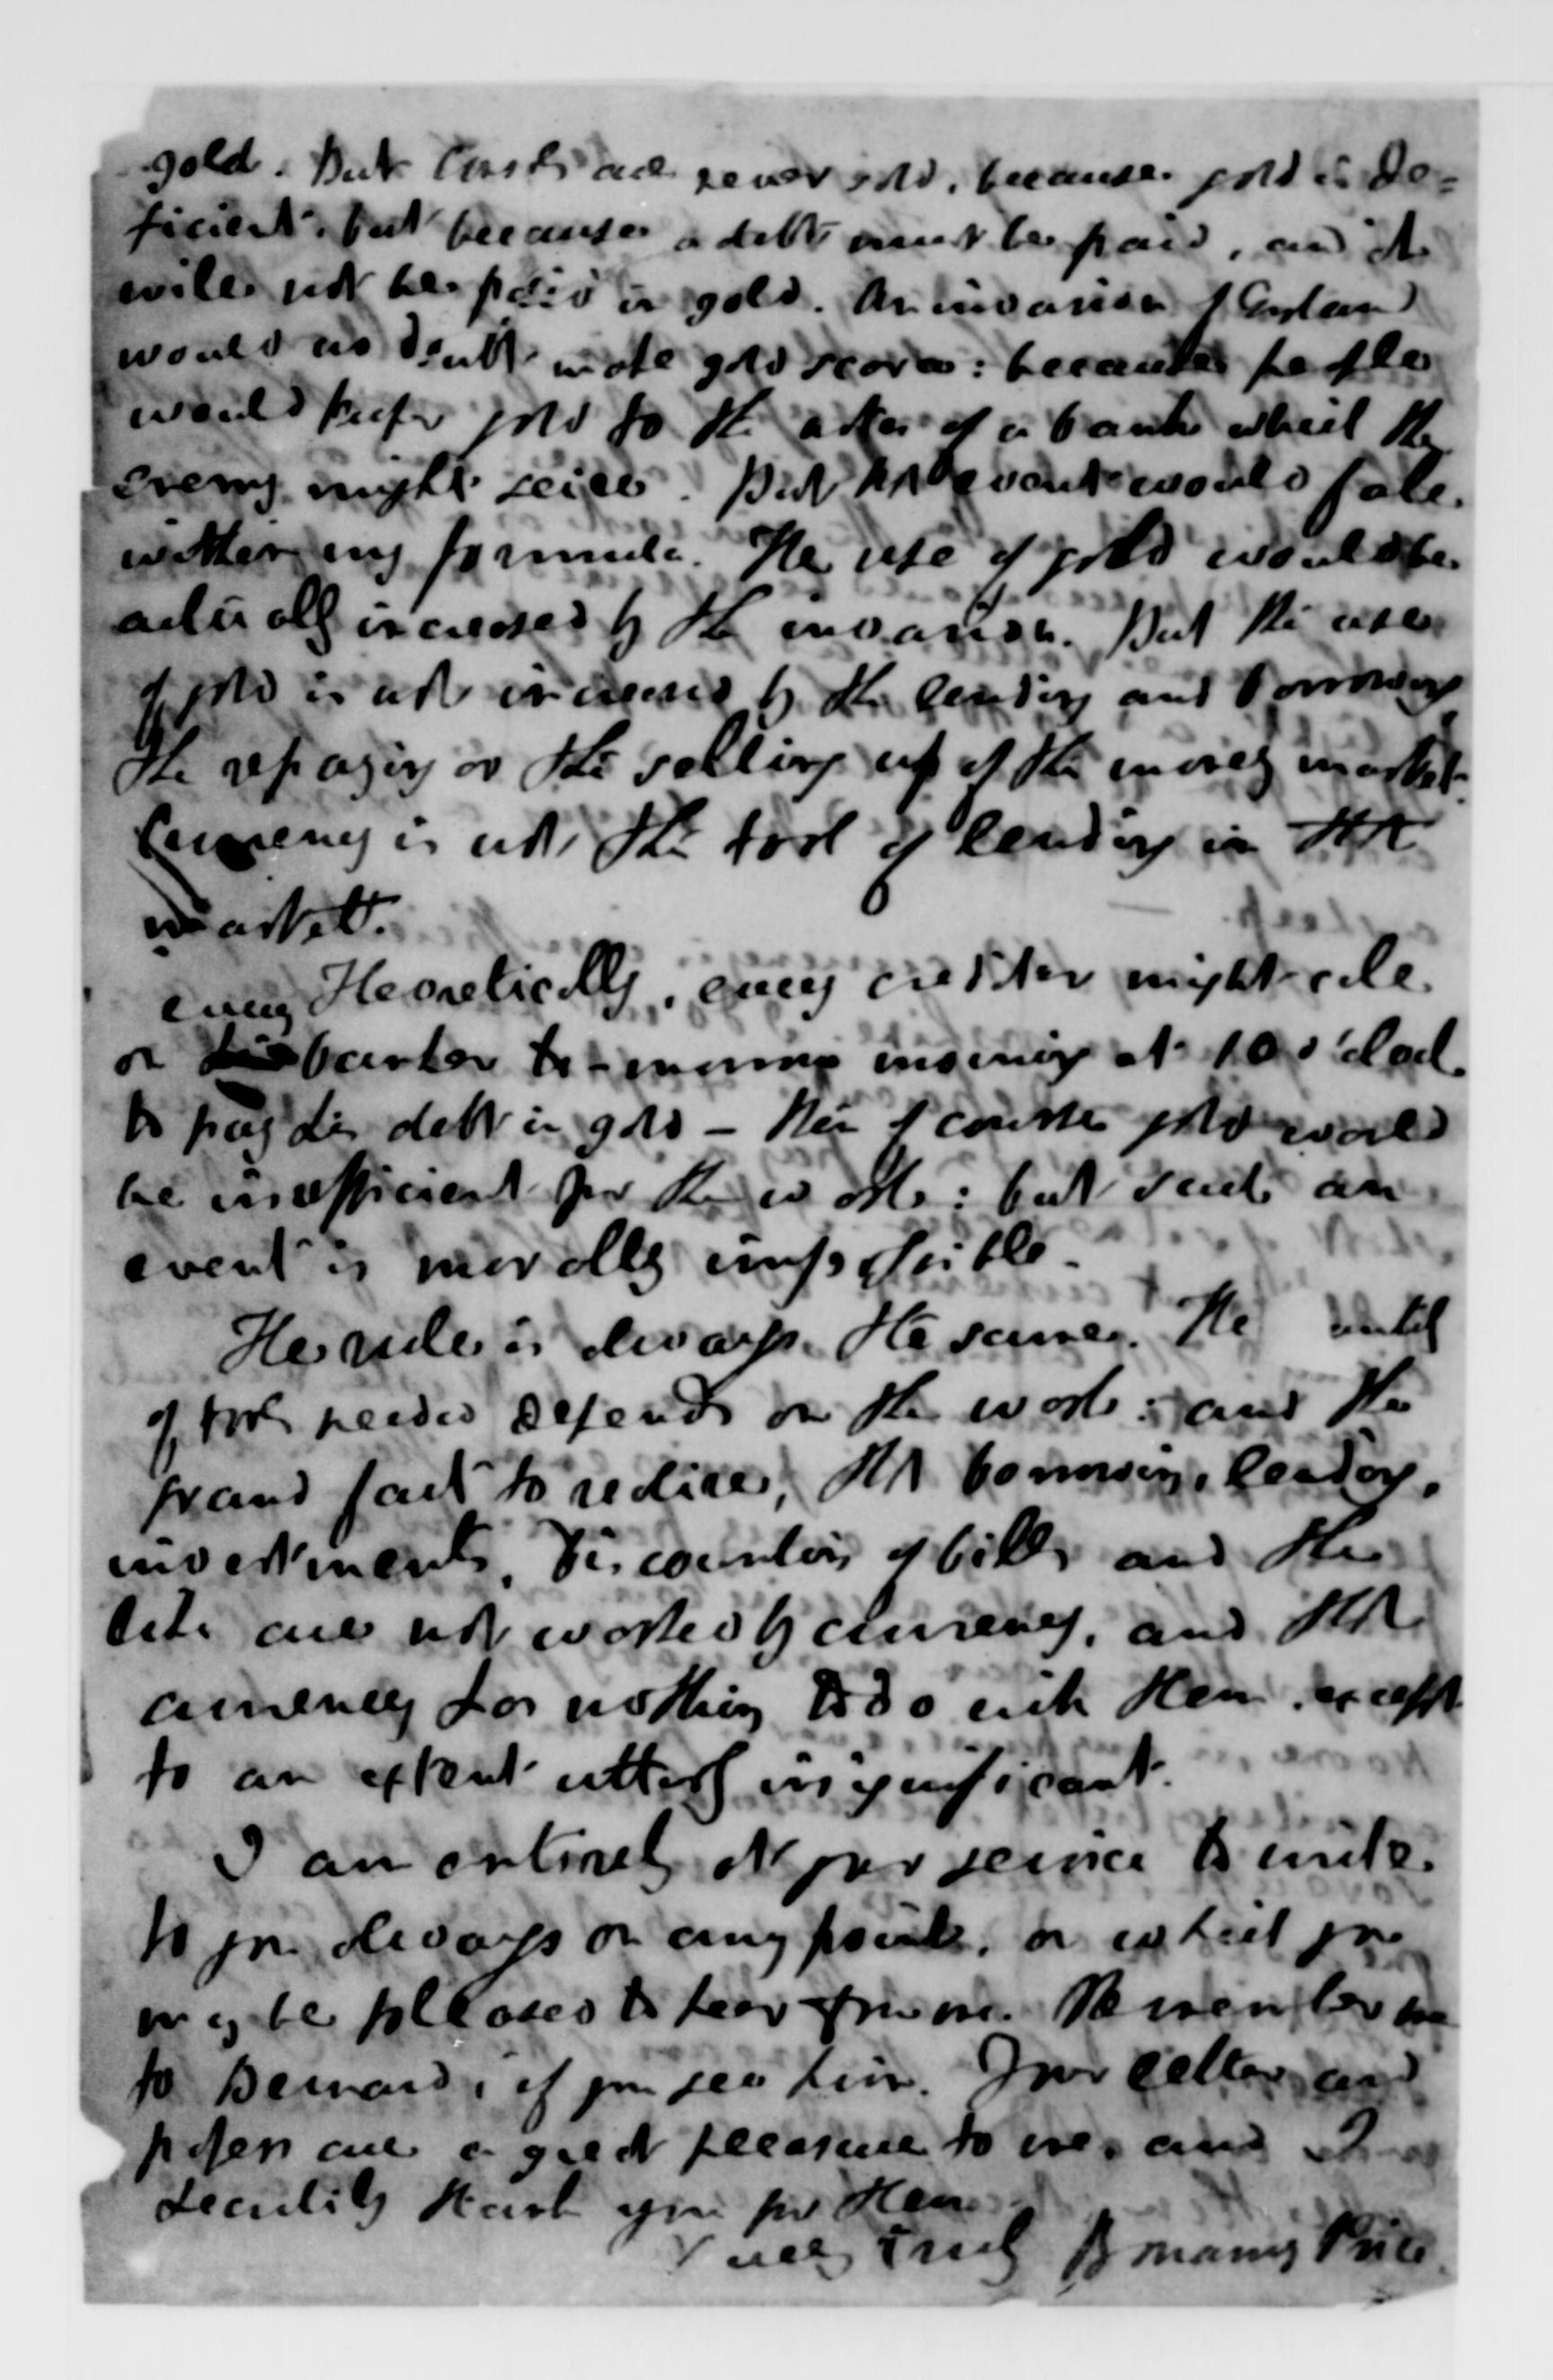 gold. But Consols are never sold, because gold is de-
ficient, but because a debt must be paid, and it
will not be paid in gold. An invasion of England
would no doubt make gold scarce: because people
would prefer gold to the notes of a bank which the
enemy might seize. But that event would fall
within my formula. The use of gold would be
actually increased by the invasion. But the use
of gold is not increased by the lending and borrowing
the repaying or the selling up of the money market.
Currency is not the tool of lending in that
market.
Theoretically, every creditor might call
on banker to-morrow morning at 10 o'clock
to pay his debt in gold – then of course gold would
be insufficient for the work: but such an
event is morally impossible.
The rule is always the same. The
of tools needed depends on the work: and the
grand fact to realise, that borrowing, lending,
investments, discounting of bills and the
like are not worked by currency, and that
currency has nothing to do with them, except
to an extent utterly insignificant.
I am entirely at your service to write
to you always on any point, on which you
may be pleased to hear from me. Remember me
to Bernard, if you see him. Your letter and
papers are a great pleasure to me, and I
heartily thank you for them.
Very truly Bonamy Price